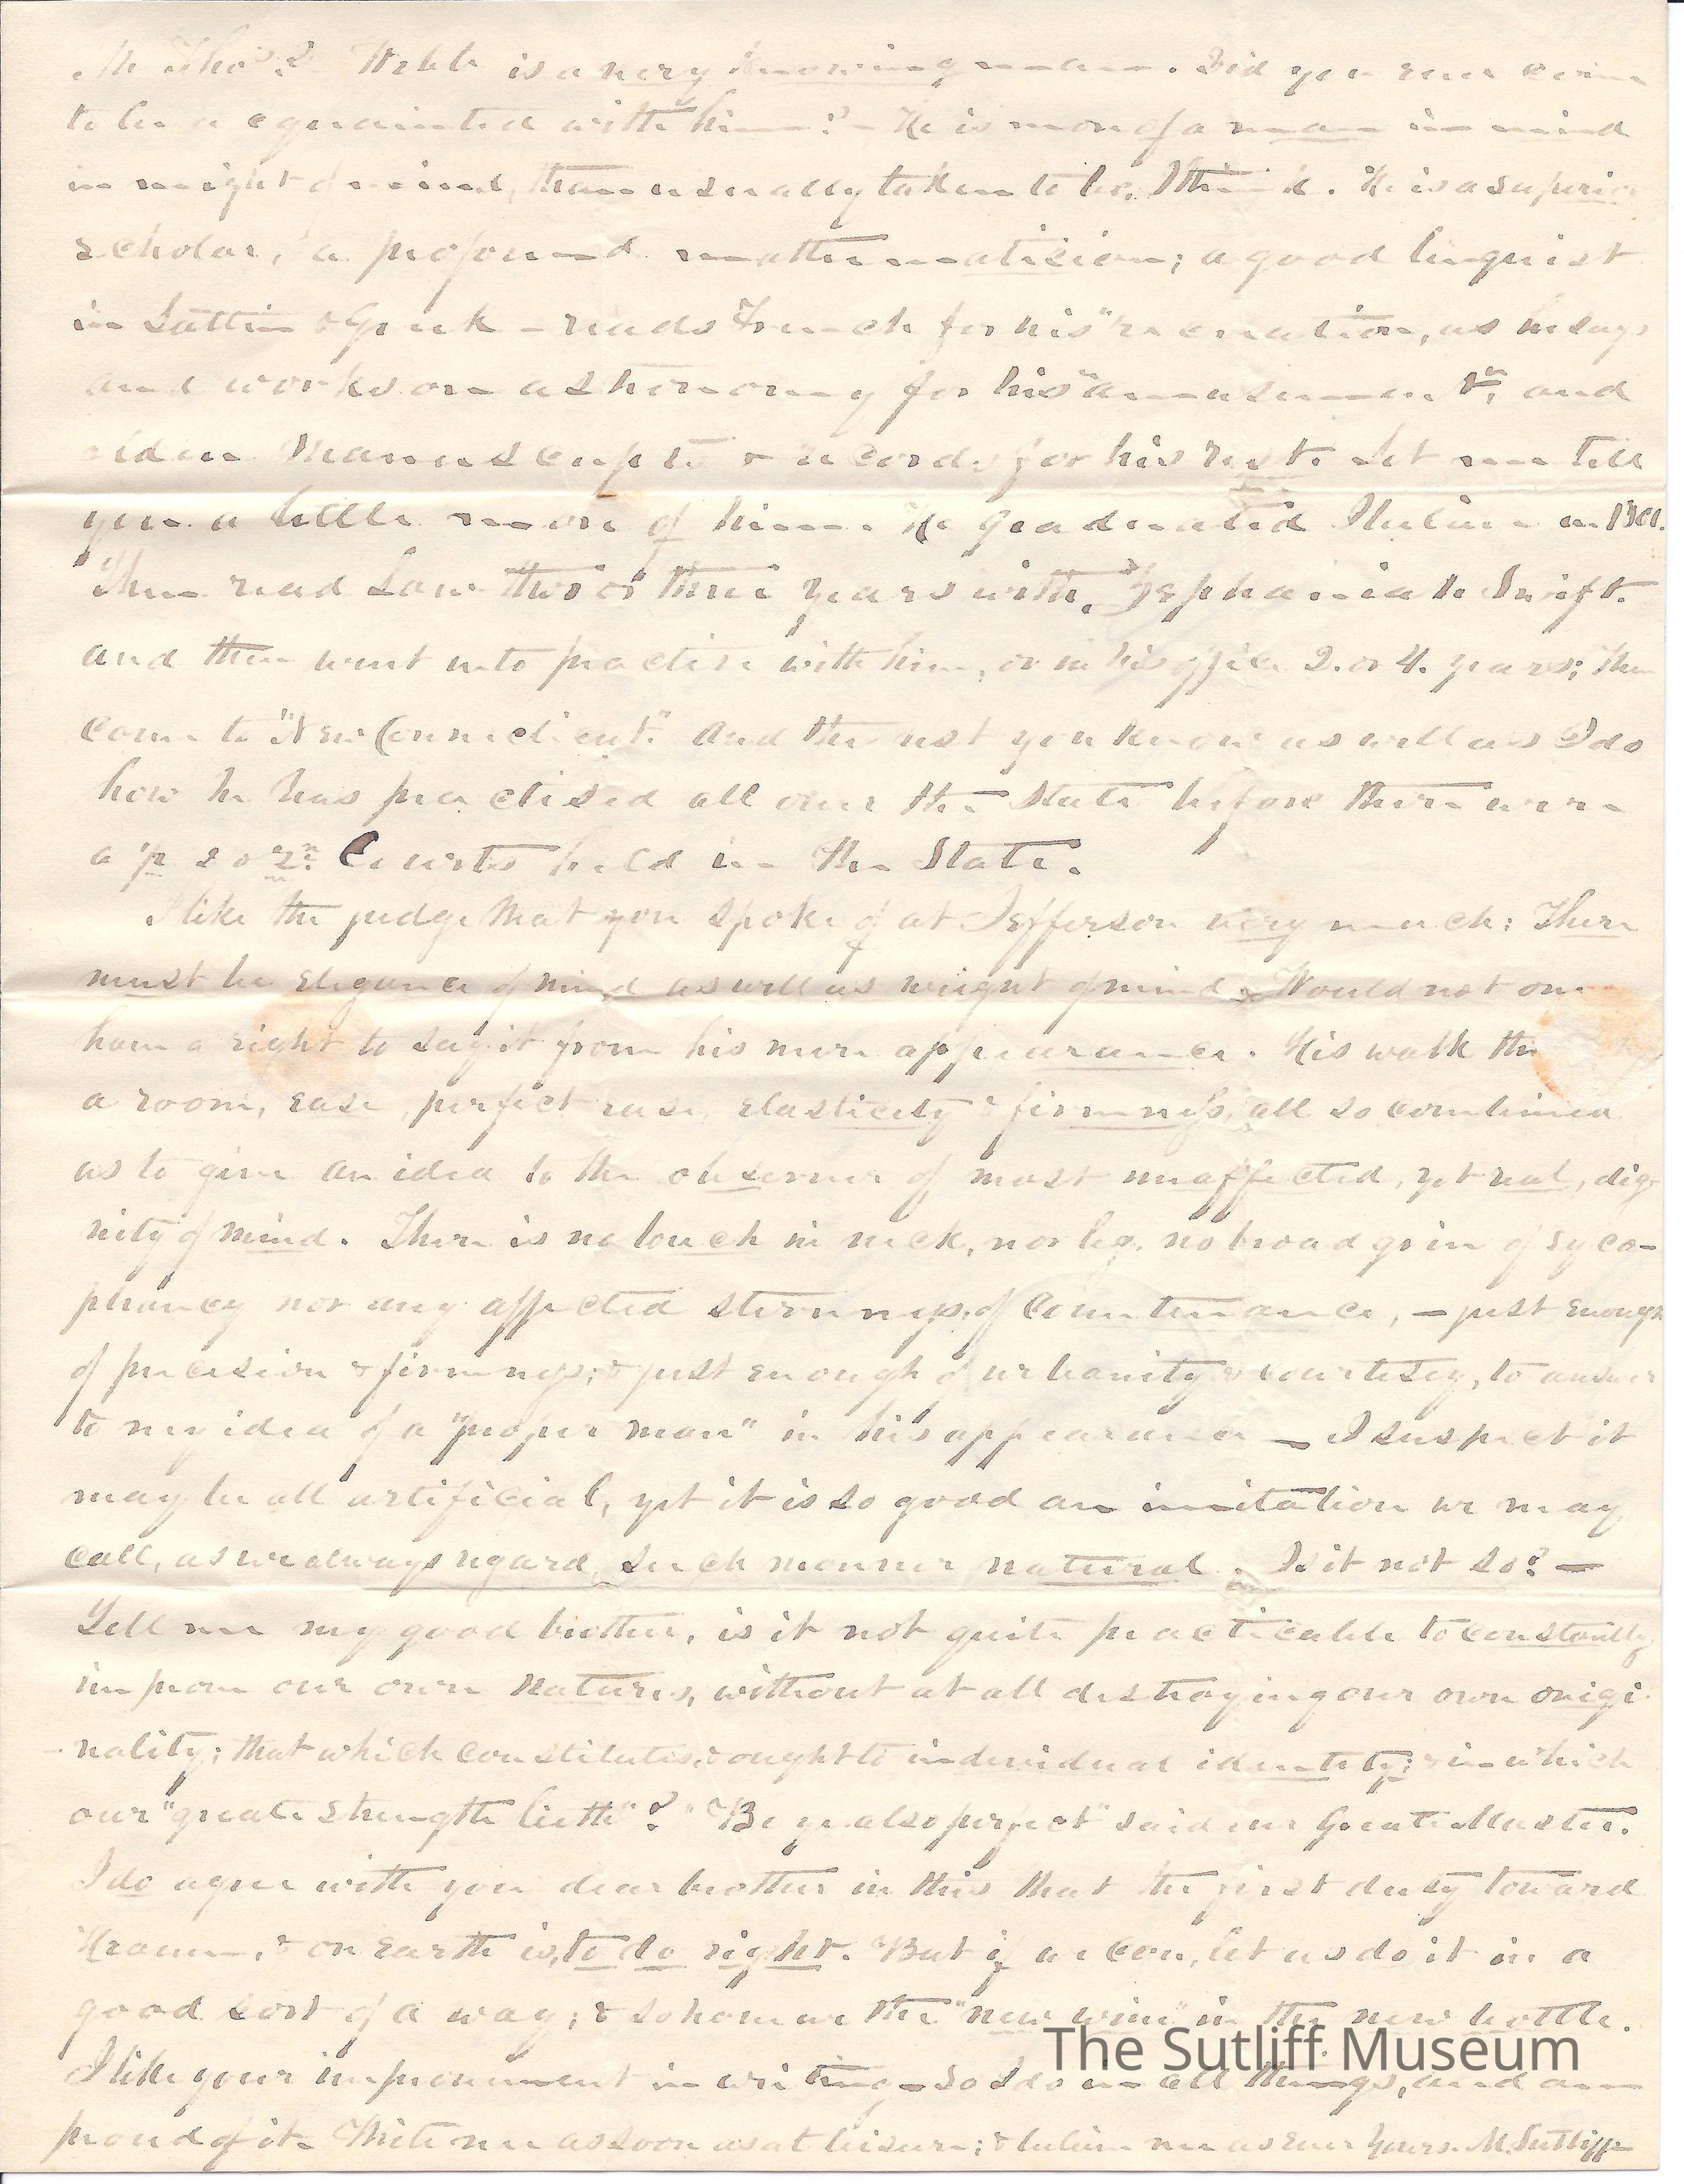 Mr Tho.s D. Webb is a very knowing man. Did you ever come
to be acquainted with him? – He is more of a man in mind
in weight of mind, than usually taken to be, I think. He is a superior
scholar, a profound mathematicion; a good linguist
in Lattin & Greek – reads French for his "recreation, as he says
and works on astronomy for his "amusement", and
olden Manuscripts & records for his rest. Let me tell
you a little more of him. He graduated I believe in
Then read Law two or three years with, Zephaniah Swift.
and then went into practise with him, or in his office 2. or 4. years; then
come to "New Connecticut." And the rest you know as well as I do
how he has practised all over the State before there were
a p Courts held in the State.
I like the judge that you spoke of at Jefferson very much: There
must be elegance of mind as well as weight of mind. Would not one
have a right to say it from his mere appearance. His walk thro
a room, ease, perfect ease, elasticity & firmness, all so combined
as to give an idea to the observer of most unaffected, yet real, dig-
nity of mind. There is no louch in neck, nor leg, no broad grin of syco-
phancy nor any affected sternness of countenance, – just enough
of precision & firmness; & just enough of urbanity & courtesy, to answer
to my idea of a "proper man" in his appearance – I suspect it
may be all artificial, yet it is so good an imitation we may
call, as we always regard such manner natural. Is it not so? –
Tell me my good brother, is it not quite practicable to constantly
improve our own natures, without at all destroying our own origi-
-nality; that which constitutes, & ought to individual identity; & in which
our "great strength lieth"? "Be ye also perfect" said our Great Master.
I do agree with you dear brother in this that the first duty toward
Heaven, & on earth is, to do right. But if we can, let us do it in a
good sort of a way; & so have we the "new wine" in the new bottle.
I like your improvement in writing – so I do in all things, and am
proud of it. Write me as soon as at leisure; & believe me as ever yours. M. Sutliff–
The Sutliff Museum